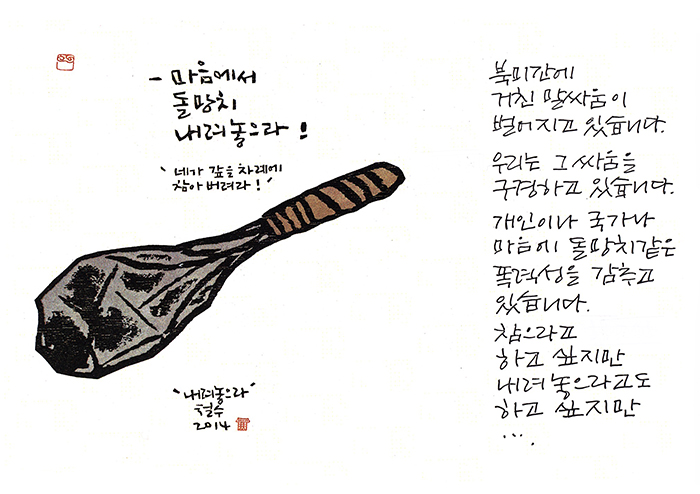 - 마음에서
돌망치
내려놓으라!
"네가 갚을 차례에
참아버려라!"
"내려놓으라"
철수
2014
북미간에
거친 말싸움이
벌어지고 있습니다.
우리는 그 싸움을
구경하고 있습니다.
개인이나 국가나
마음에 돌망치같은
폭력성을 감추고
있습니다.
참으라고
하고 싶지만
내려놓으라고도
하고 싶지만
....